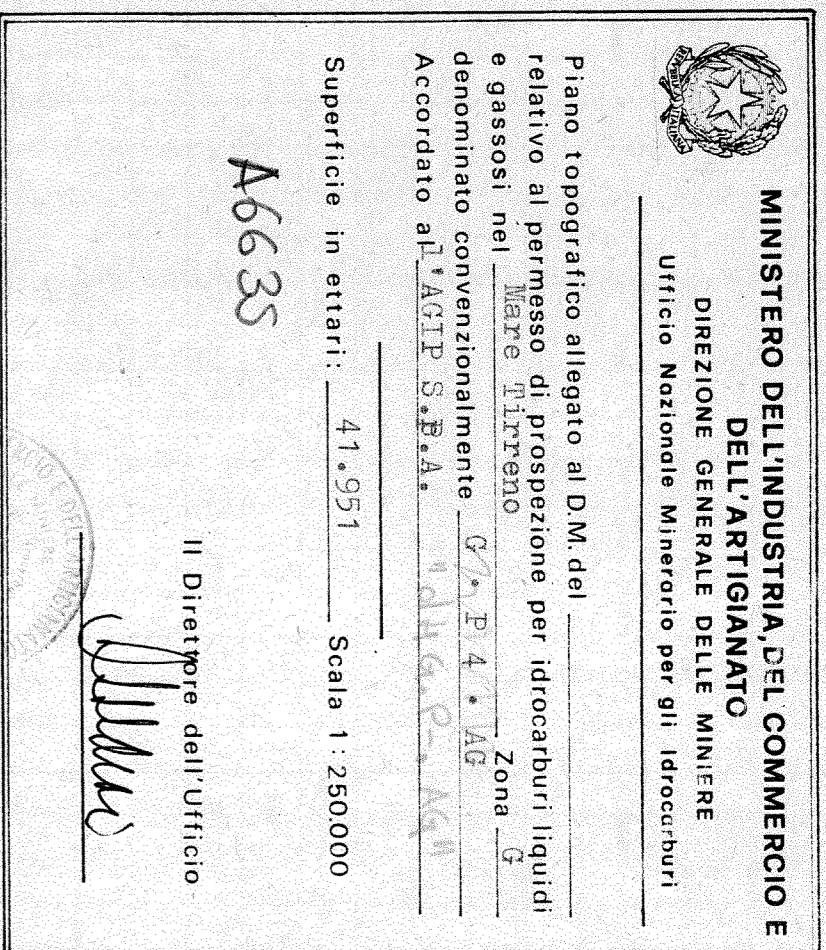 MINISTERO DELL'INDUSTRIA, DEL COMMERCIO E
DELL'ARTIGIANATO
DIREZIONE GENERALE DELLE MINIERE
Ufficio Nazionale Minerario per gli Idrocarburi
REPVBBLICA ITALIANA
Piano topografico allegato al D.M. del
relativo al permesso di prospezione per idrocarburi liquidi
e gassosi nel Mare Tirreno Zona G
denominato convenzionalmente G . P 4 . AG
Accordato al l'AGIP S.P.A.
Superficie in ettari: 41.951 Scala 1:250.000
A6635
Il Direttore dell'Ufficio